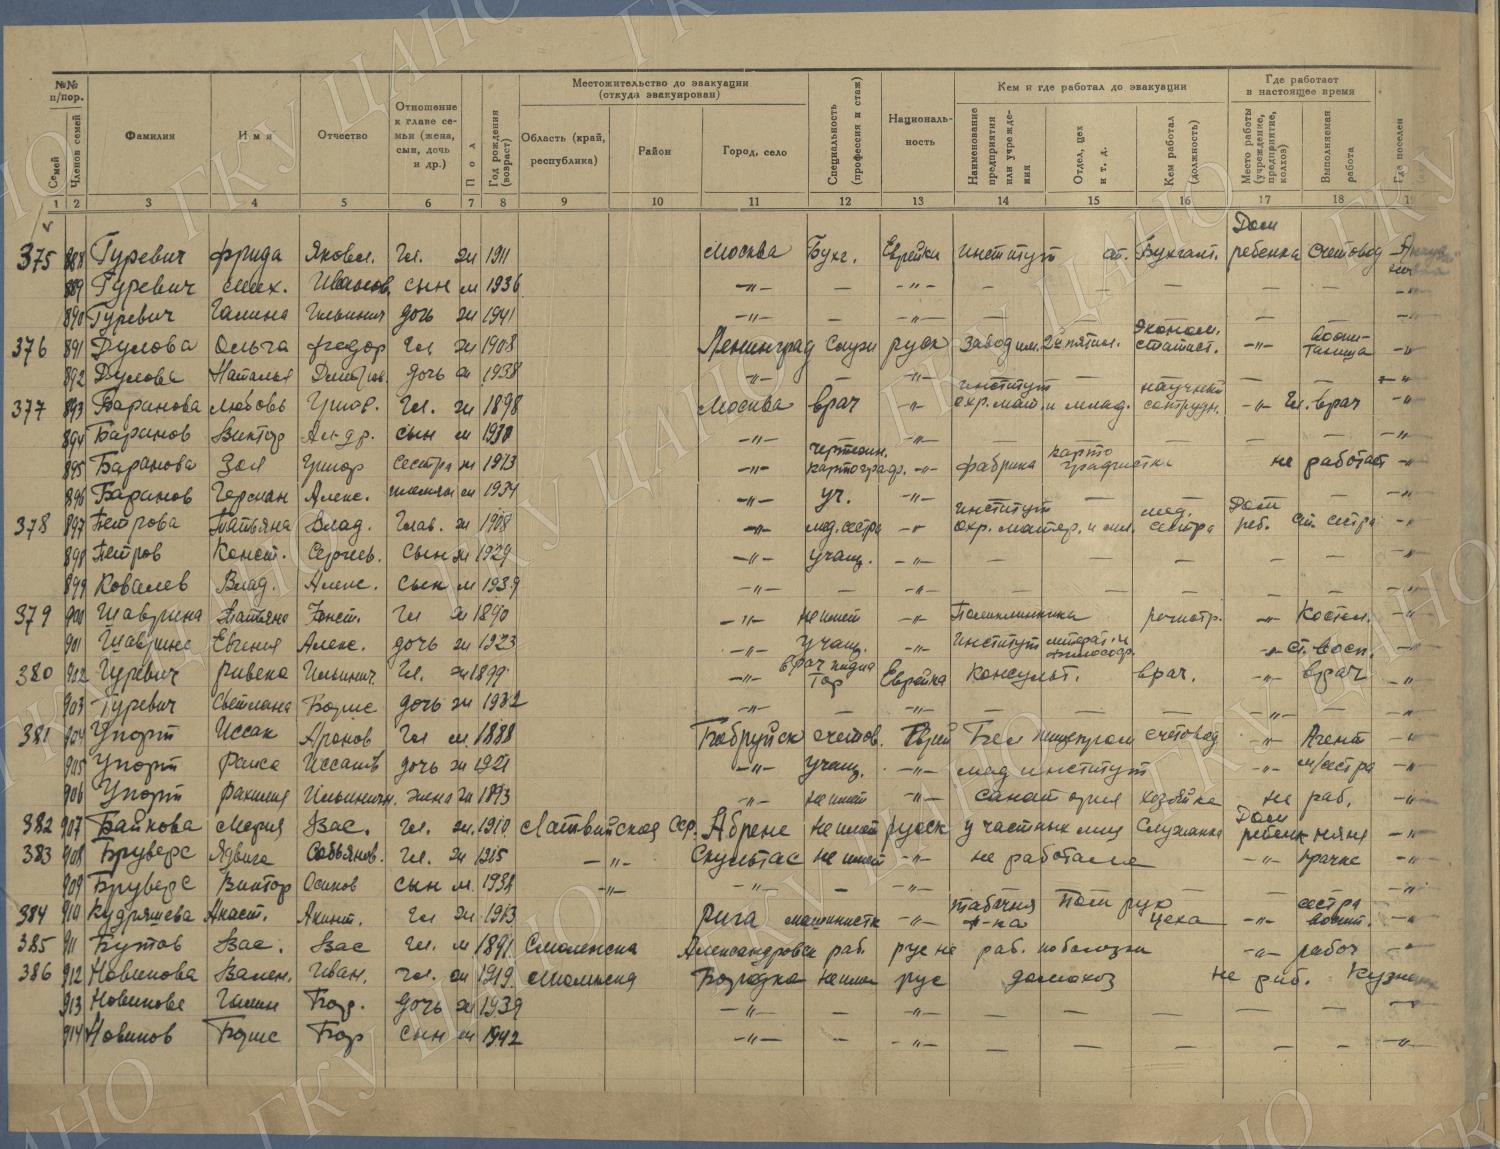 №№ п/пор.
Семей
Членов семей
Фамилия
Имя
Отчество
Отношение к главе семьи (жена, сын, дочь и др.)
Пол
Год рождения (возраст)
Местожительство до эвакуации (откуда эвакуирован)
Область (край, республика)
Район
Город, село
Специальность (профессия и стаж)
Националь-ность
Кем и где работал до эвакуации
Наименование предприятия или учрежде-ния
Отдел, цех и т. д.
Кем работал (должность)
Где работает в настоящее время
Место работы (учреждение, предприятие, колхоз)
Выполняемая работа
Где поселен
1 2 3 4 5 6 7 8 9 10 11 12 13 14 15 16 17 18 19
375 888 Гуревич Фрида Яковл. Гл. ж 1911 Москва Бухг. Еврейка институт ст. Бухгалт. Дом ребенка счетовод
889 Гуревич Мих. Иванов. сын м 1936 -"- — -"- — — — — —
890 Гуревич Галина Ильинич дочь ж 1941 -"- — -"- — — — — —
376 891 Дулова Ольга Федор Гл. ж 1908 Ленинград Служ русск Завод им. 2й пятил. Эконом. статист. -"- воспи-таница -"-
892 Дулова Наталья Дмитр. дочь ж 1938 -"- — -"- — — — — -"-
377 893 Баранова Любовь Григор. Гл. ж 1898 Москва врач -"- институт охр. мат. и млад. научный сотрудн. -"- Гл. врач -"-
894 Баранов Виктор Ал-др. сын м 1930 -"- — -"- — — — — — -"-
895 Баранова Зоя Григор сестра ж 1913 -"- чертежн. картограф. -"- фабрика картографистка не работает -"-
896 Баранов Герман Алекс. племян м 1934 -"- уч. -"- — — — — — -"-
378 897 Петрова Татьяна Влад. Глав. ж 1908 -"- мед. сестра -"- институт охр. матер. и мл. мед. сестра Дом реб. ст. сестра -"-
898 Петров Конст. Сергеев. сын м 1929 -"- учащ. -"- — — — — — -"-
899 Ковалев Влад. Алекс. сын м 1939 -"- — -"- — — — — — -"-
379 900 Шаврина Татьяна Конст. Гл ж 1890 -"- не имеет -"- Поликлиника регистр. -"- Костел. -"-
901 Шаврина Евгения Алекс. дочь ж 1923 -"- учащ. -"- Институт литерат. и философ. -"- ст. восп. -"-
380 902 Гуревич Ривека Ильинич. Гл. ж 1899 -"- врач педиатор Еврейка консульт. врач. -"- врач -"-
903 Гуревич Светлана Борис дочь ж 1932 -"- — — — — — -"- — -"-
381 904 Упорт Иссак Аронов Гл м 1888 Бобруйск счетов. Еврей Бел пищепром счетовод -"- Агент -"-
905 Упорт Раиса Иссаков дочь ж 1921 -"- учащ. -"- мед институт -"- м/сестра -"-
906 Упорт Рахилия Ильинич. жена ж 1893 -"- не имеет -"- санатория хозяйка не раб. -"-
382 907 Байкова Мария Вас. Гл. ж. 1910 Латвийская ССР. Абрене не имеет русск у частных лиц Служанка Дом ребенк няня -"-
383 908 Бруверс Ядвига Савьянов. Гл. ж 1915 -"- Скультас не имеет -"- не работала -"- прачка -"-
909 Бруверс Виктор Осипов сын м. 1938 -"- -"- — -"- — — — — — -"-
384 910 Кудряшева Анаст. Акинт. Гл ж 1913 Рига машинистк -"- табачня ф-ка Пом рук цеха -"- сестра воспит. -"-
385 911 Бутов Вас. Вас Гл. м 1891 Смоленска Александровск раб. рус не раб. по болезни -"- рабоч -"-
386 912 Новикова Вален. Иван. Гл. ж 1919. Смоленска Бородка не имее рус домохоз не раб. Кузне
913 Новикова Галин Бор. дочь ж 1939 -"- — -"- — — — — — -"-
914 Новиков Борис Бор сын м 1942 -"- — -"- — — — — — -"-
ГКУ ЦАНО